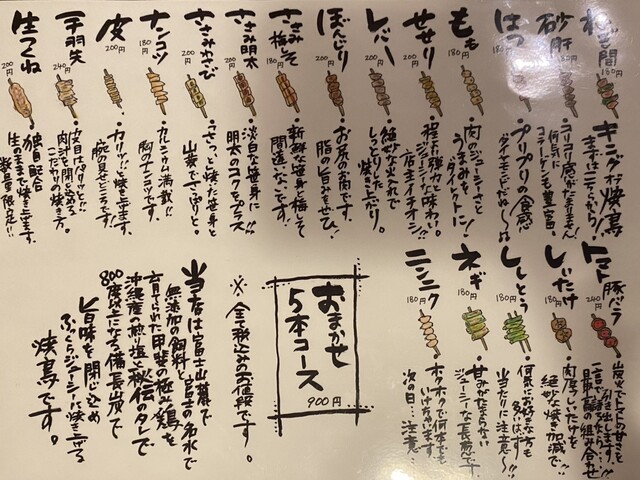 ねぎ間
180円
キングな焼鳥
まずはこっから!
砂肝
180円
コリコリ感がたまりません!
何気に
コラーゲンも豊富。
はつ
プリプリの食感
もも
180円
肉のジューシーさと
うまみを
ダイレクトに!
せせり
200円
程よい弾力と味わい。
ジューシー!
店主イチオシ!!
レバー
200円
絶妙な火入れで
しっとりした
焼き上がり。
ぼんじり
200円
お尻のお肉です。
脂の旨みをぜひ!
ささみ梅しそ
180円
新鮮な笹身と梅しそ
間違いないです。
ささみ明太
200円
淡白な笹身に
明太のコクをプラス
ささみわさび
200円
さっと焼いた笹身と
山葵でさっぱりと。
ナンコツ
180円
カルシウム満載!!
胸のナンコツです。
皮
200円
カリッ!!と焼き上げます。
手羽先
240円
皮目はパリッと!!
肉汁を閉じ込める
こだわりの焼き方。
生つくね
200円
独自配合
生のままで焼き上げます。
数量限定!!
トマト豚バラ
240円
炭火でトマトの甘さを
引き出します。
しいたけ
180円
肉厚しいたけを
絶妙な焼き加減で!!
ししとう
180円
何気にお好きな方も
多いはず!!
当たりに注意〜!!
ネギ
180円
甘みがたまらない
ジューシーな長葱です。
ニンニク
180円
ホクホクで何本でも
いけちゃいます
次の日…注意。
おまかせ
5本コース
900円
※全て税込みのお値段です。
当店は富士山麓で
無添加の飼料と富士の名水で
育てられた甲斐の極み鶏を
沖縄産の煎り塩と秘伝のタレで
800度以上になる備長炭で
旨味を閉じ込め
ふっくらジューシーに焼き上げる
焼鳥です。